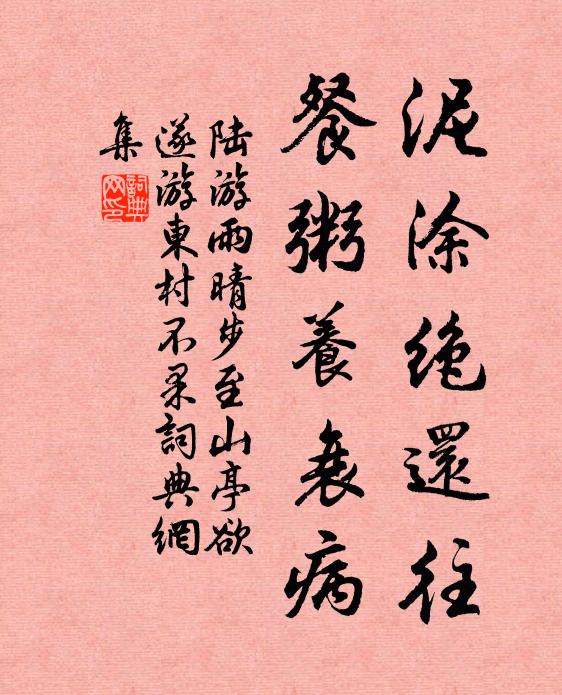 泥涂绝還往
餐粥養衰病
陆游雨晴步至山亭欲
遂游東村不果詞典網
集
詞典
网印